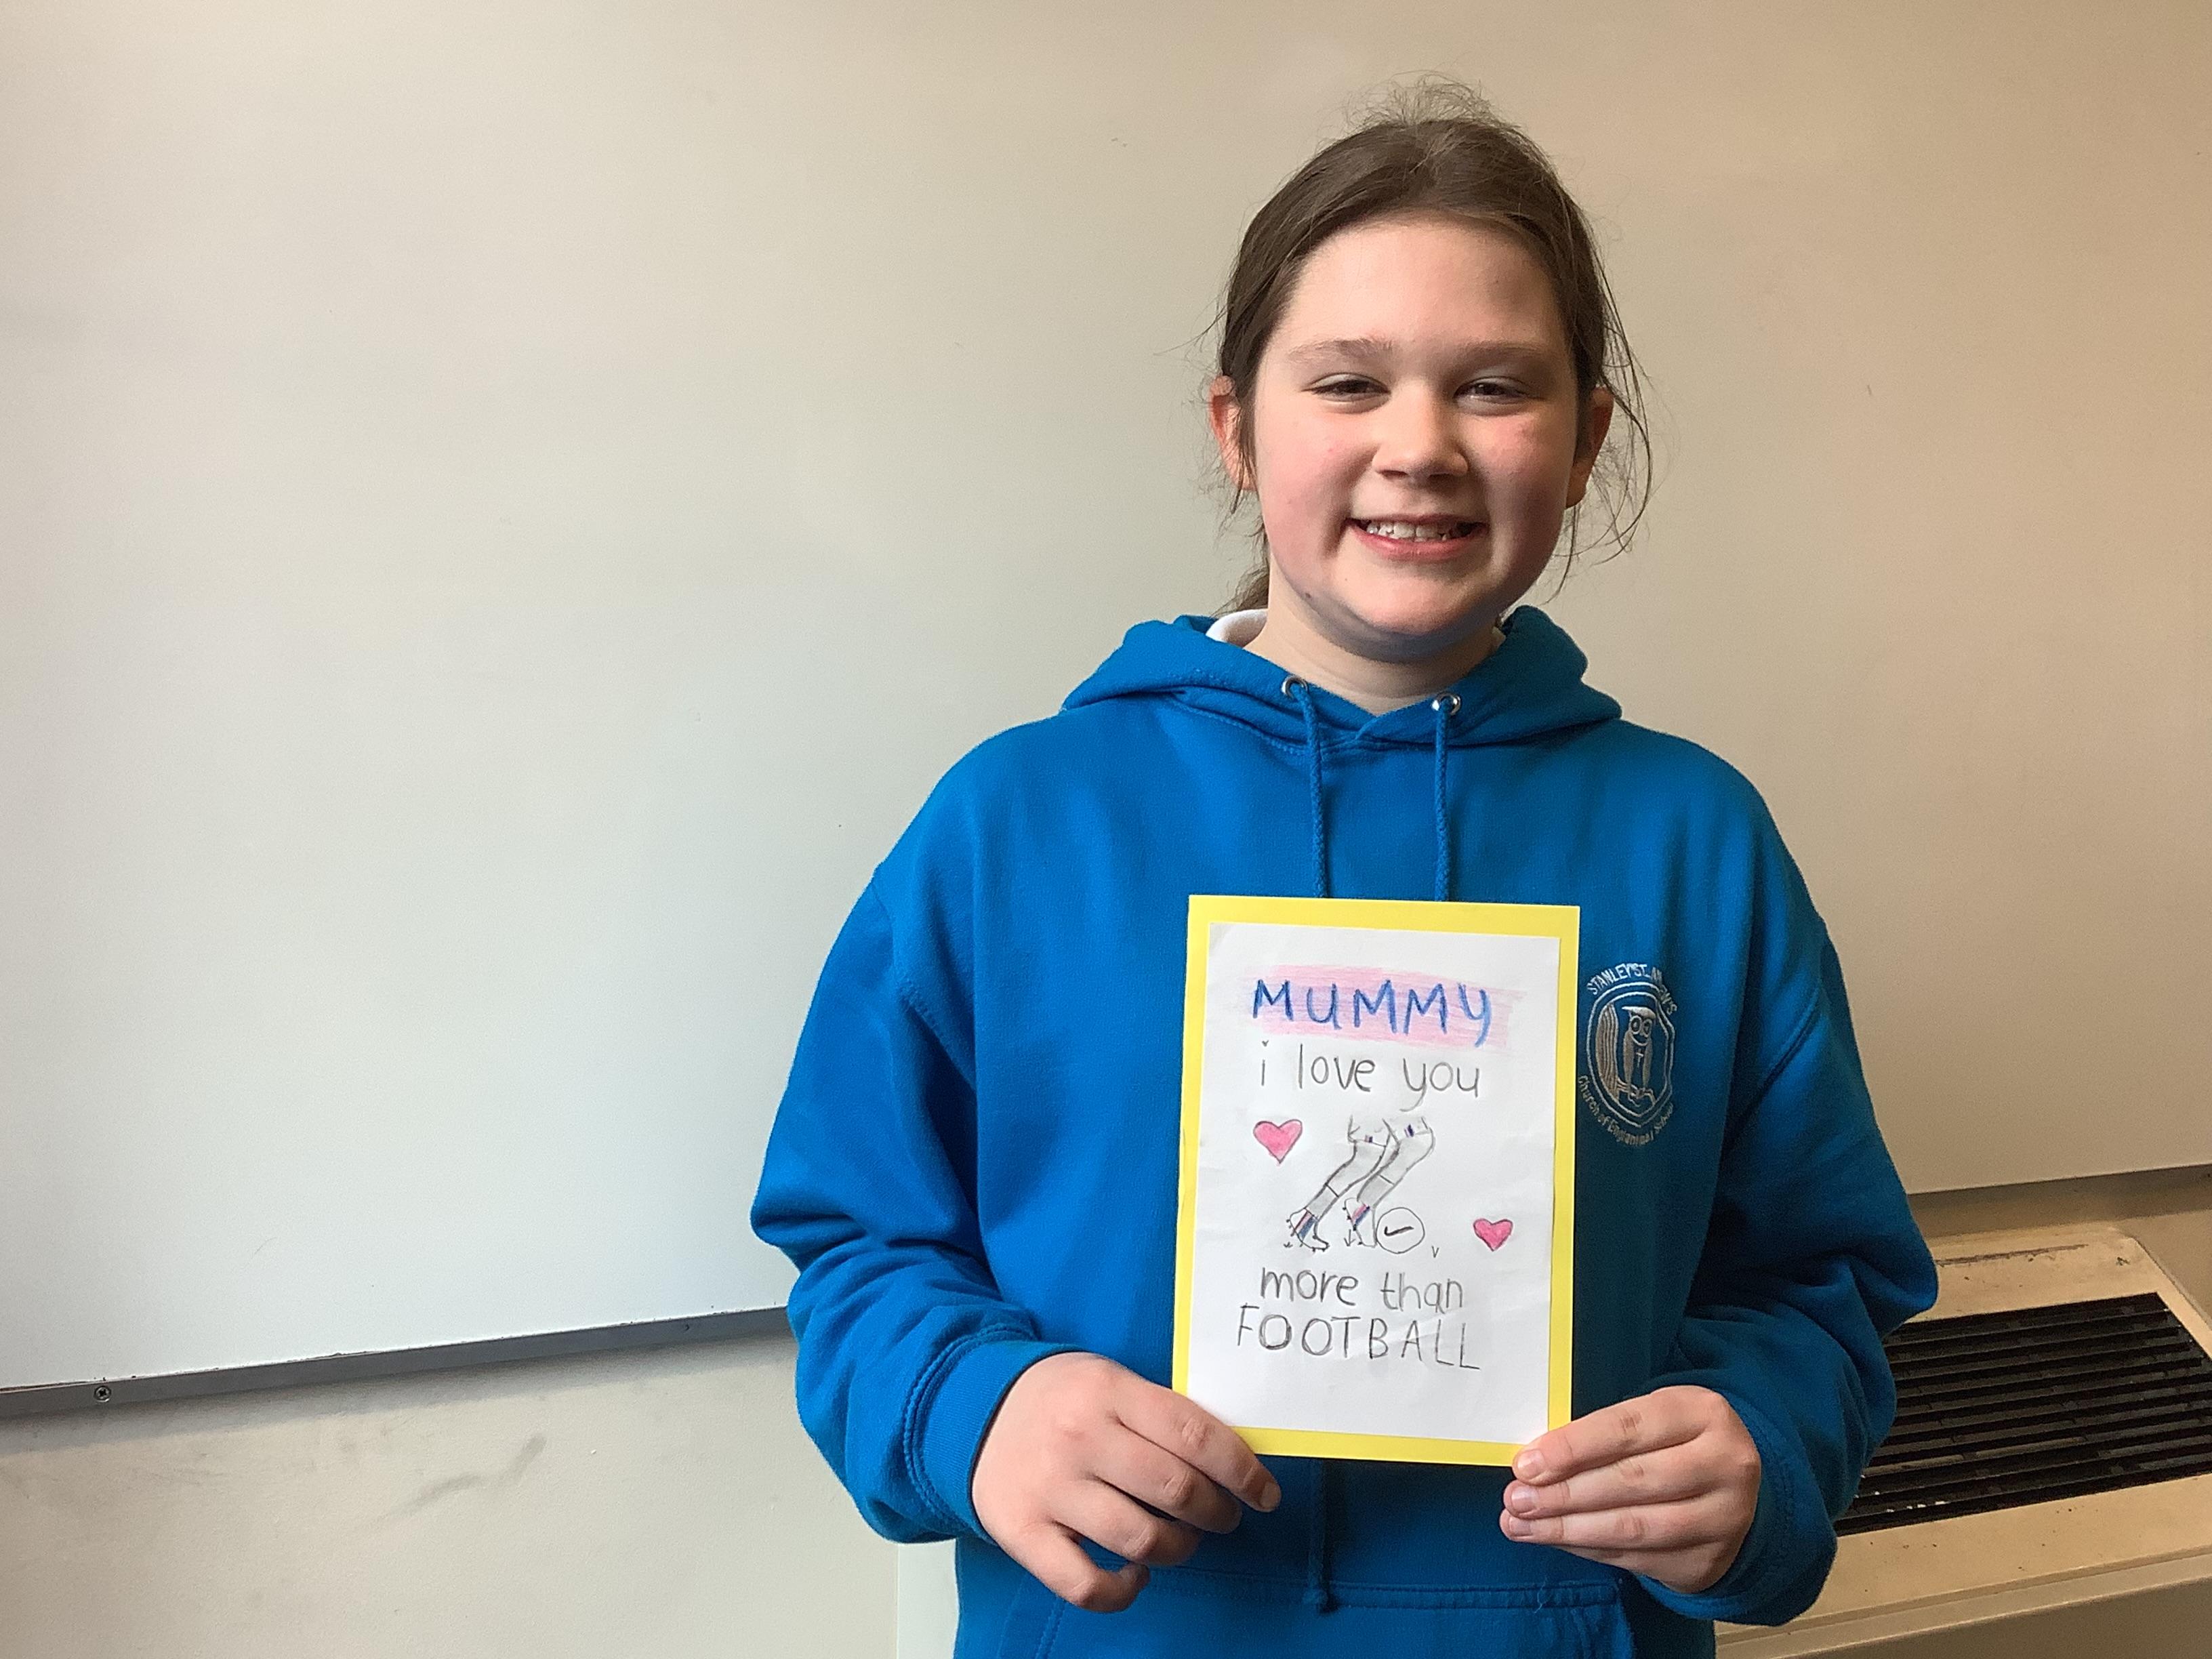 MUMMY
i love you
more than
FOOTBALL
STANLEY ST. ANDREW'S
Church of England